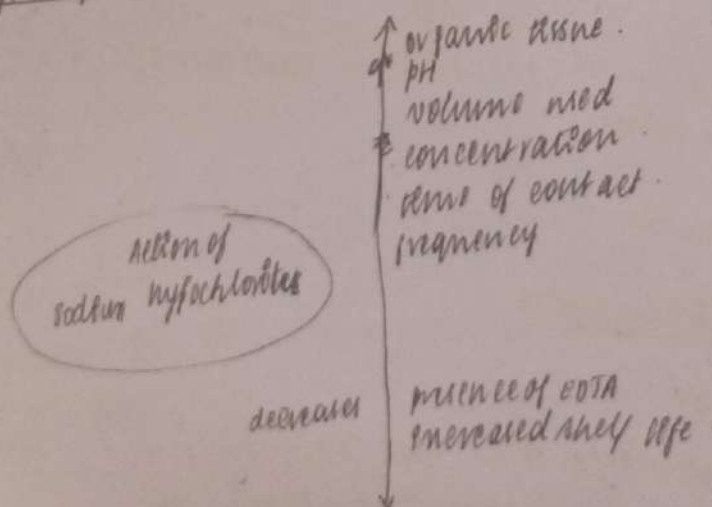 organic tissue.
pH
volume used
concentration
time of contact.
frequency
Action of
sodium hypochlorites
decreases
presence of EDTA
increased shelf life